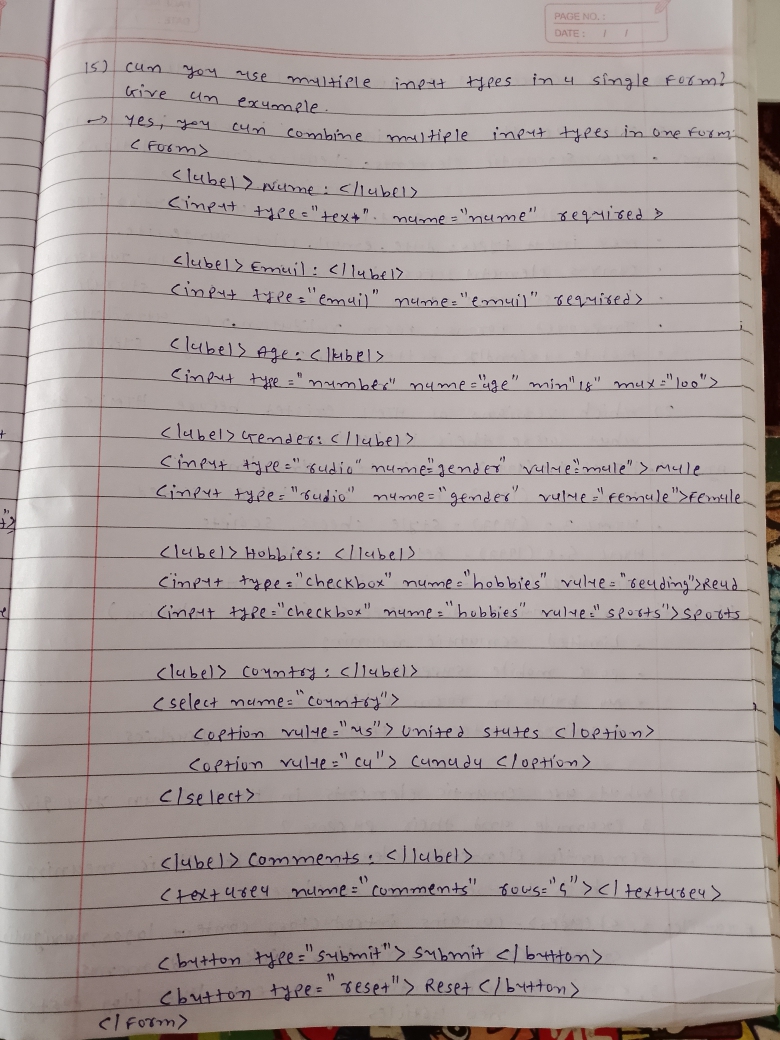 PAGE NO.:
DATE: / /
15) Can you use multiple input types in a single form?
Give an example.
→ Yes, you can combine multiple input types in one form.
<form>
<label> Name: </label>
<input type="text" name="name" required>
<label> Email: </label>
<input type="email" name="email" required>
<label> Age: </label>
<input type="number" name="age" min"18" max="100">
<label> Gender: </label>
<input type="radio" name="gender" value="male"> Male
<input type="radio" name="gender" value="female">Female
<label> Hobbies: </label>
<input type="checkbox" name="hobbies" value="reading">Read
<input type="checkbox" name="hobbies" value="sports"> Sports
<label> Country: </label>
<select name="country">
<option value="us"> United States </option>
<option value="ca"> Canada </option>
</select>
<label> Comments: </label>
<textarea name="comments" rows="5"> </textarea>
<button type="submit"> Submit </button>
<button type="reset"> Reset </button>
</form>